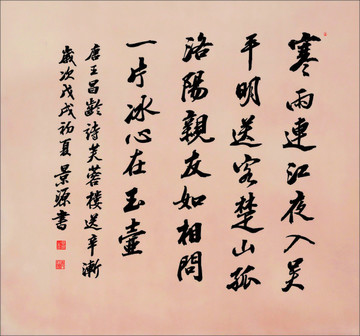 寒雨連江夜入吴
平明送客楚山孤
洛陽親友如相問
一片冰心在玉壶
唐王昌龄詩芙蓉樓送辛漸
歲次戊戌初夏景源書